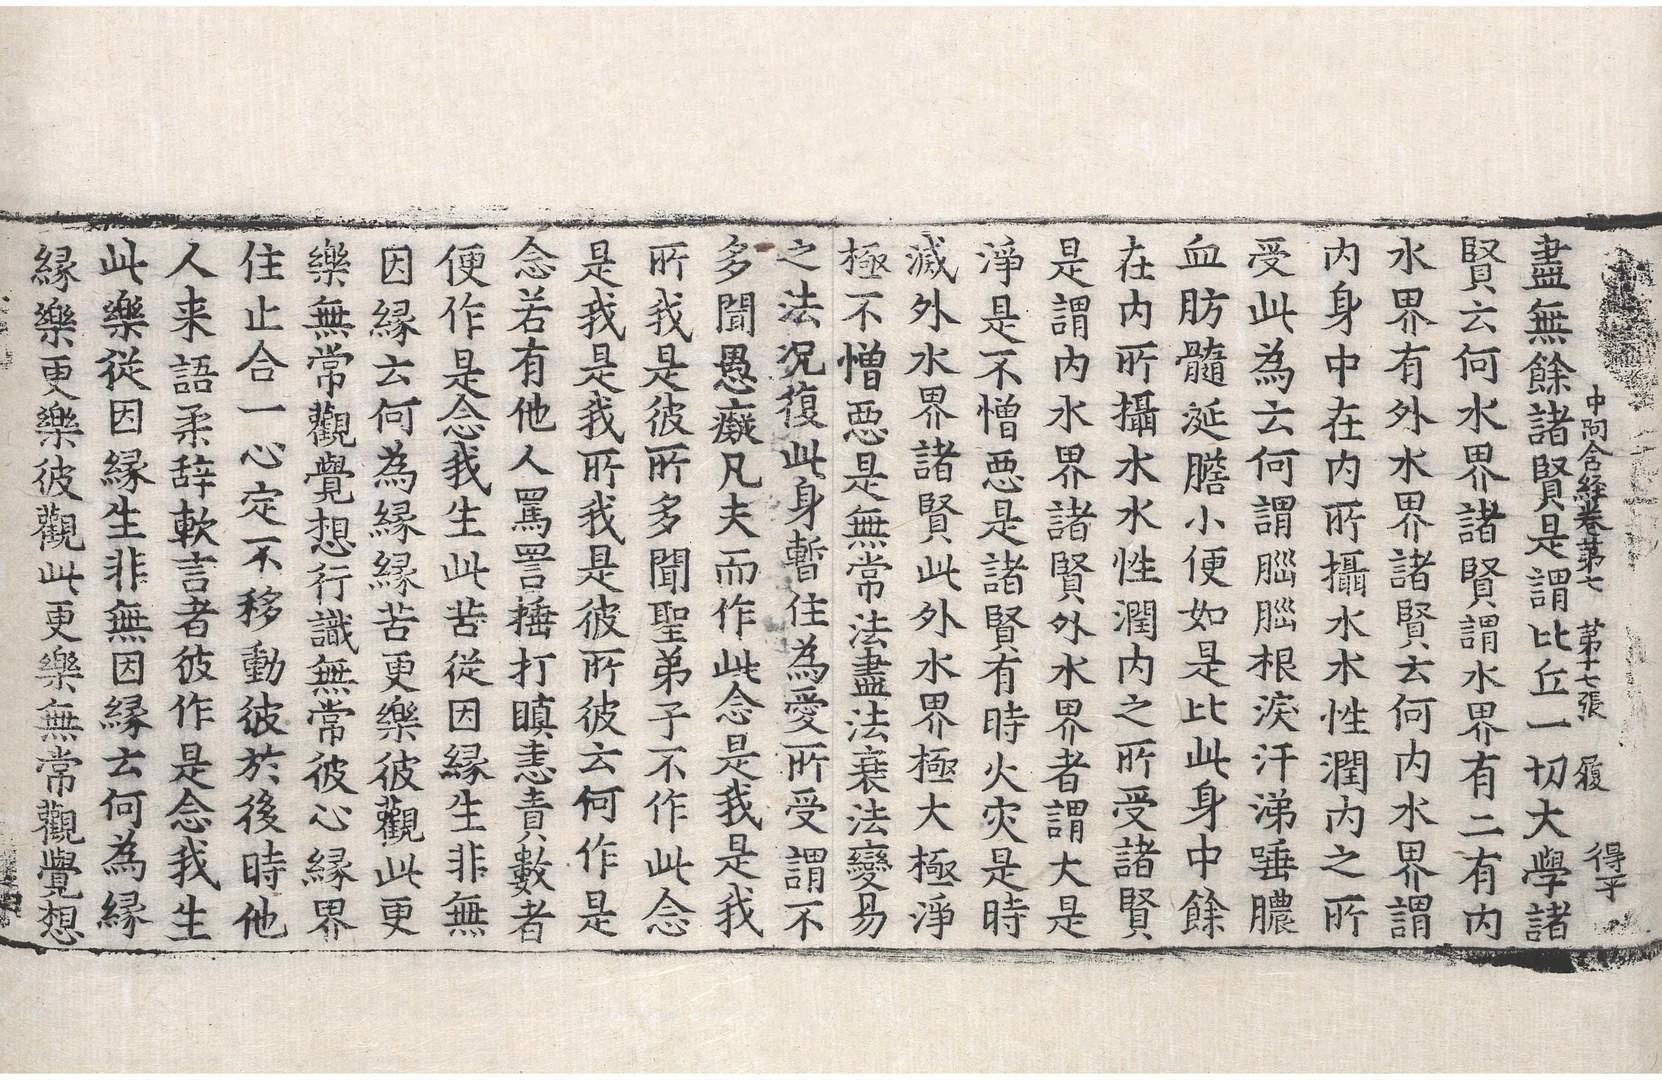 中阿含経卷苐七 苐十七張 履 得平
盡無餘諸賢是謂比丘一切大學諸
賢云何水界諸賢謂水界有二有内
水界有外水界諸賢云何内水界謂
内身中在内所攝水水性潤内之所
受此為云何謂腦腦根淚汗涕唾膿
血肪髓涎膽小便如是比此身中餘
在内所攝水水性潤内之所受諸賢
是謂内水界諸賢外水界者謂大是
淨是不憎惡是諸賢有時火灾是時
滅外水界諸賢此外水界極大極淨
極不憎惡是無常法盡法衰法變易
之法况復此身暫住為愛所受謂不
多聞愚癡凡夫而作此念是我是我
所我是彼所多聞聖弟子不作此念
是我是我所我是彼所彼云何作是
念若有他人罵詈捶打瞋恚責數者
便作是念我生此苦從因緣生非無
因緣云何為緣緣苦更樂彼觀此更
樂無常觀覺想行識無常彼心緣界
住止合一心定不移動彼於後時他
人来語柔辞軟言者彼作是念我生
此樂從因緣生非無因緣云何為緣
緣樂更樂彼觀此更樂無常觀覺想